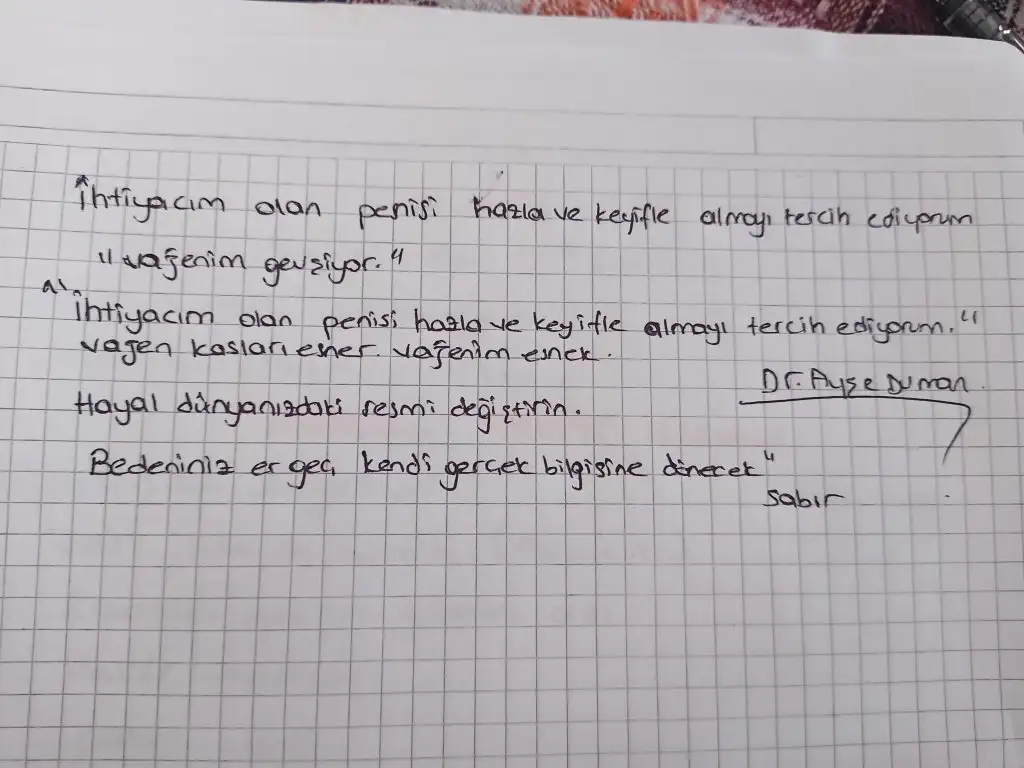 İhtiyacım olan penisi hazla ve keyifle almayı tercih ediyorum
"vajenim gevşiyor."
İhtiyacım olan penisi hazla ve keyifle almayı tercih ediyorum."
vajen kasları esner. vajenim esnek.
Dr. Ayşe Duman.
Hayal dünyanızdaki resmi değiştirin.
Bedeniniz er geç, kendi gerçek bilgisine dönecek"
sabır